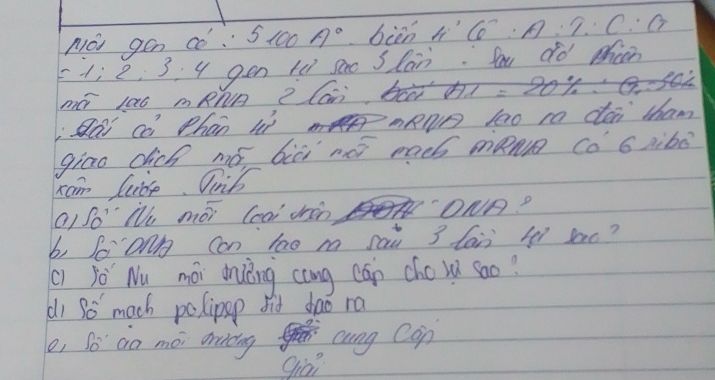 Một gen có : 5100 A°. biết tỉ lệ : A : T : C : G
= 1 : 2 : 3 : 4 gen tự sao 3 lần . Sau đó phiên
mã tạo mRNA 2 lần.
tất cả Phân tử mRNA tạo ra đều tham
giao dịch mã biết mỗi mạch mRNA có 6 ribô
xôm lướt. Tính
a) Số Nu mỗi loại trên DNA?
b, Số DNA con tạo ra sau 3 lần tự sao?
c) Số Nu môi trường cung cấp cho tự sao?
d) Số mạch polipep tit tạo ra
e, Số aa môi trường cung cấp
Giải